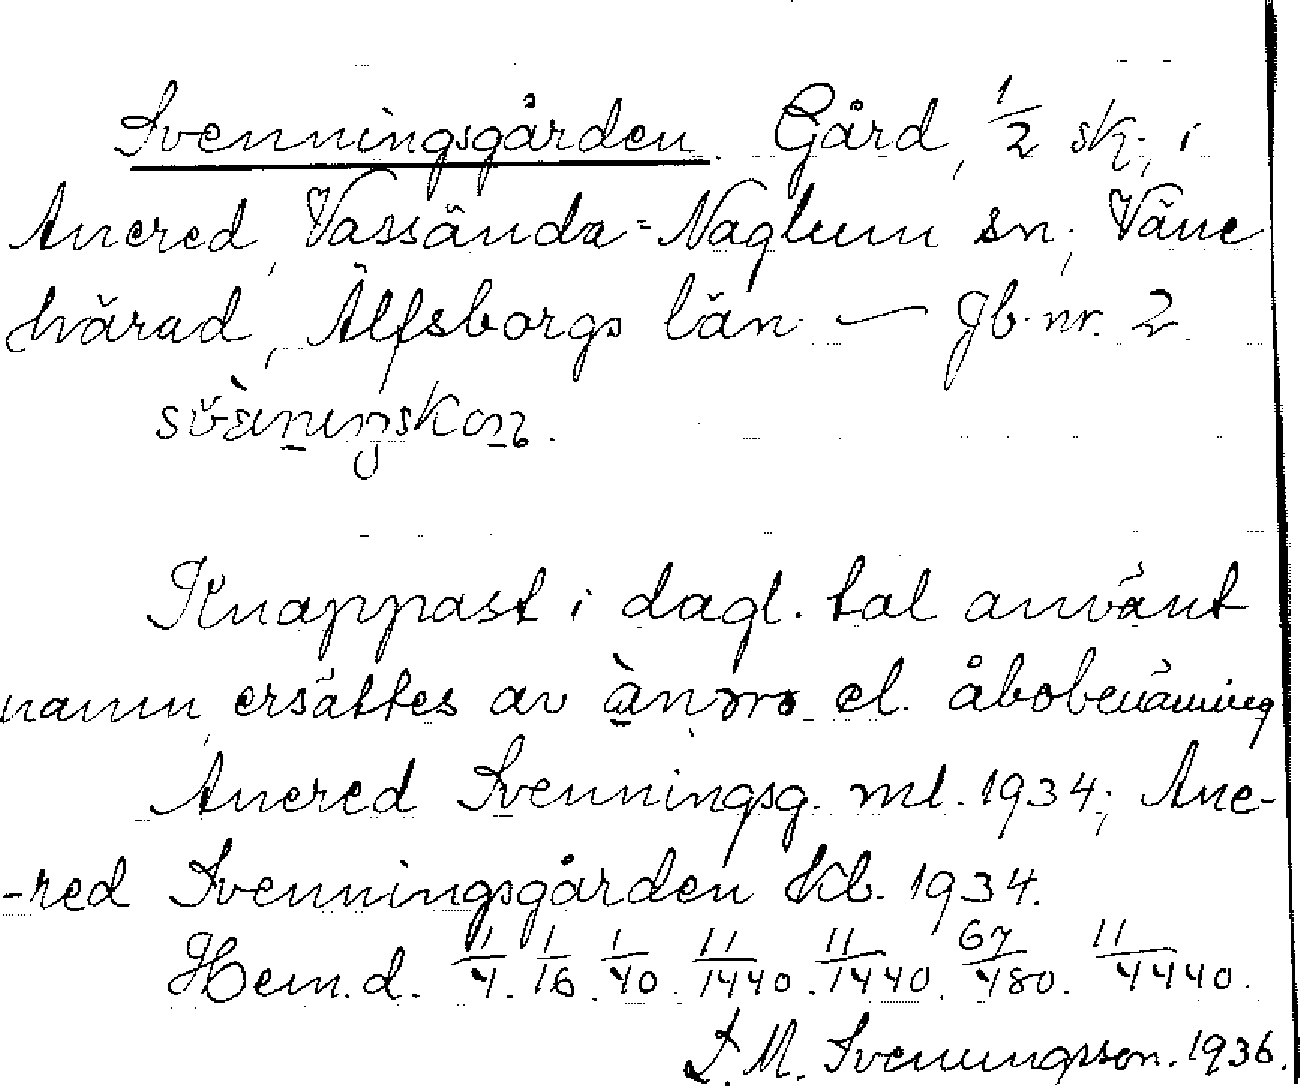 Svenningsgården. Gård, 1/2 sk; i
Anered, Vassända-Naglum sn; Väne
härad, Älfsborgs län. — Jb. nr. 2.
Knappast i dagl. tal använt
namn, ersättes av el. åbobenämning
Anered Svenningsg. ml. 1934; Ane-
-red Svenningsgården kb. 1934.
Hem.d. 1/4. 1/16. 1/40. 11/1440. 11/1440. 67/480. 11/4440.
S. M. Svenningsson. 1936.